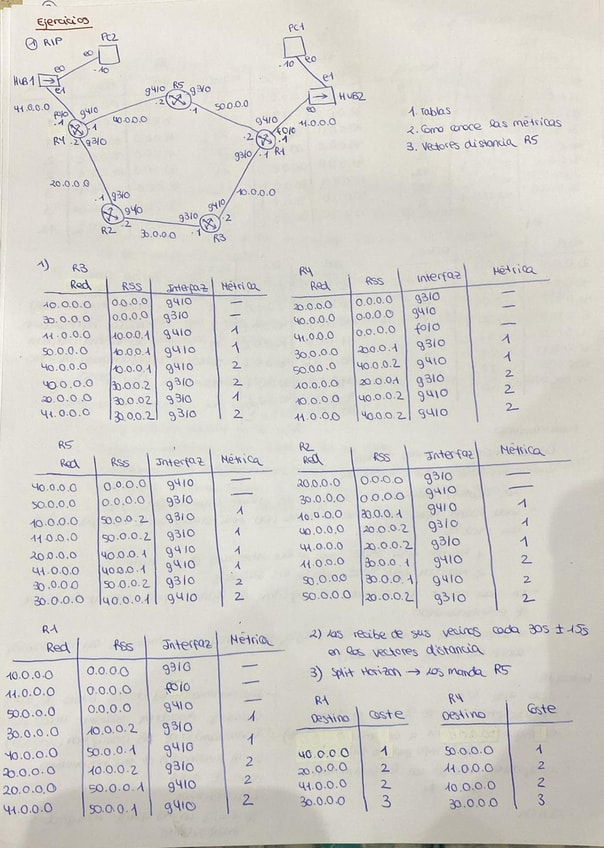 Ejercicios
① RIP
PC2
PC1
e0
.10
.10
e0
HUB1
e0
e1
e1
HUB2
e0
R5
g4/0
g3/0
.2
.2
41.0.0.0
f0/0
g4/0
.1
.1
40.0.0.0
50.0.0.0
g4/0
f0/0
11.0.0.0
.2
.1
R4
.2
g3/0
g3/0
.1
R1
20.0.0.0
10.0.0.0
g3/0
.1
g4/0
.2
g3/0
.1
g4/0
.2
R2
30.0.0.0
R3
1. Tablas
2. Como conoce las métricas
3. Vectores distancia R5
1) R3
Red RSS Interfaz Métrica
10.0.0.0 0.0.0.0 g4/0 —
30.0.0.0 0.0.0.0 g3/0 —
11.0.0.0 10.0.0.1 g4/0 1
50.0.0.0 10.0.0.1 g4/0 1
40.0.0.0 10.0.0.1 g4/0 2
40.0.0.0 30.0.0.2 g3/0 2
20.0.0.0 30.0.0.2 g3/0 1
41.0.0.0 30.0.0.2 g3/0 2
R4
Red RSS Interfaz Métrica
20.0.0.0 0.0.0.0 g3/0 —
40.0.0.0 0.0.0.0 g4/0 —
41.0.0.0 0.0.0.0 f0/0 —
30.0.0.0 20.0.0.1 g3/0 1
50.0.0.0 40.0.0.2 g4/0 1
10.0.0.0 20.0.0.1 g3/0 2
10.0.0.0 40.0.0.2 g4/0 2
11.0.0.0 40.0.0.2 g4/0 2
R5
Red RSS Interfaz Métrica
40.0.0.0 0.0.0.0 g4/0 —
50.0.0.0 0.0.0.0 g3/0 —
10.0.0.0 50.0.0.2 g3/0 1
11.0.0.0 50.0.0.2 g3/0 1
20.0.0.0 40.0.0.1 g4/0 1
41.0.0.0 40.0.0.1 g4/0 1
30.0.0.0 50.0.0.2 g3/0 2
30.0.0.0 40.0.0.1 g4/0 2
R2
Red RSS Interfaz Métrica
20.0.0.0 0.0.0.0 g3/0 —
30.0.0.0 0.0.0.0 g4/0 —
10.0.0.0 30.0.0.1 g4/0 1
40.0.0.0 20.0.0.2 g3/0 1
41.0.0.0 20.0.0.2 g3/0 1
11.0.0.0 30.0.0.1 g4/0 2
50.0.0.0 30.0.0.1 g4/0 2
50.0.0.0 20.0.0.2 g3/0 2
R1
Red RSS Interfaz Métrica
10.0.0.0 0.0.0.0 g3/0 —
11.0.0.0 0.0.0.0 f0/0 —
50.0.0.0 0.0.0.0 g4/0 —
30.0.0.0 10.0.0.2 g3/0 1
40.0.0.0 50.0.0.1 g4/0 1
20.0.0.0 10.0.0.2 g3/0 2
20.0.0.0 50.0.0.1 g4/0 2
41.0.0.0 50.0.0.1 g4/0 2
2) Las recibe de sus vecinos cada 30s ± 15s
en los vectores distancia
3) Split Horizon → Los manda R5
R1
Destino Coste
40.0.0.0 1
20.0.0.0 2
41.0.0.0 2
30.0.0.0 3
R4
Destino Coste
50.0.0.0 1
11.0.0.0 2
10.0.0.0 2
30.0.0.0 3